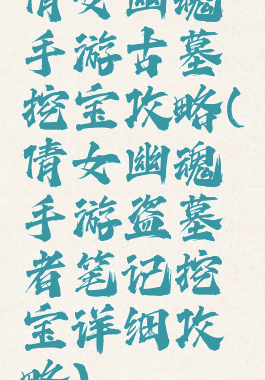 倩女幽魂
手游古墓
挖宝攻略(
倩女幽魂
手游盗墓
者笔记挖
宝详细攻
略)